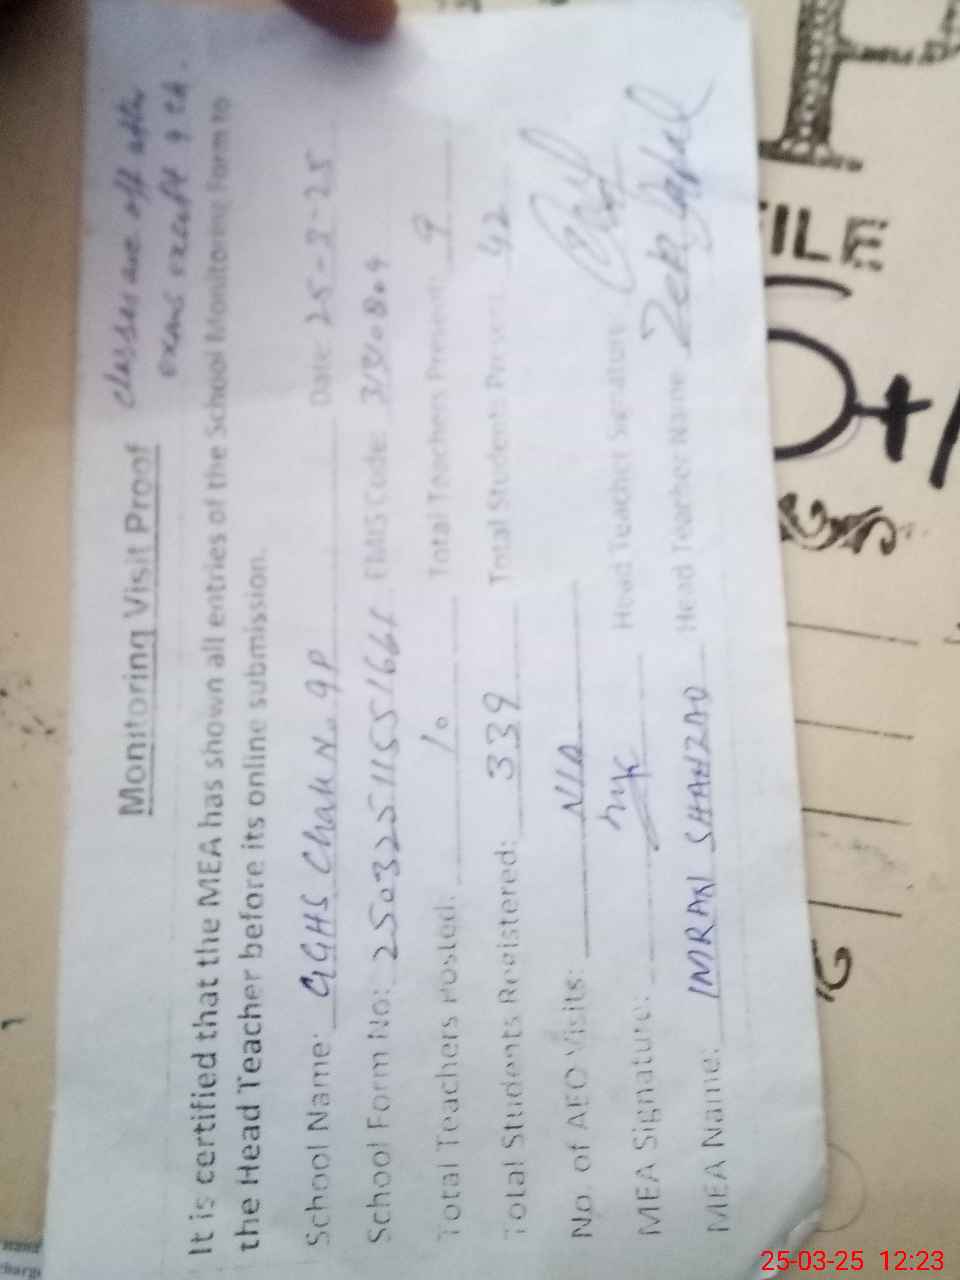 Classes are off after
exams except 9th.
Monitoring Visit Proof
It is certified that the MEA has shown all entries of the School Monitoring Form to
the Head Teacher before its online submission.
School Name: GGHS Chak No. 9P Date: 25-3-25
School Form No: EMIS Code:
Total Teachers Posted: 10 Total Teachers Present: 9
Total Students Registered: 339 Total Students Present: 42
No. of AEO Visits: Nil
MEA Signature: Head Teacher Signature:
MEA Name: IMRAN SHAHZAD Head Teacher Name:
FILE
25-03-25 12:23